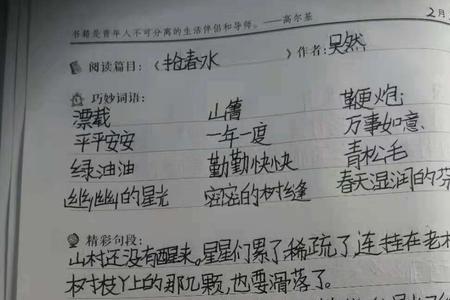 书籍是青年人不可分离的生活伴侣和导师。——高尔基
2月
阅读篇目:《抢春水》作者:吴然
巧妙词语:
漂载 山箐 鞭炮
平平安安 一年一度 万事如意
绿油油 勤勤快快 青松毛
幽幽的星光 密密的树缝 春天湿润的芬
精彩句段:
山村还没有醒来。星星们累了稀疏了,连挂在老
树枝丫上的那几颗,也要滑落了。